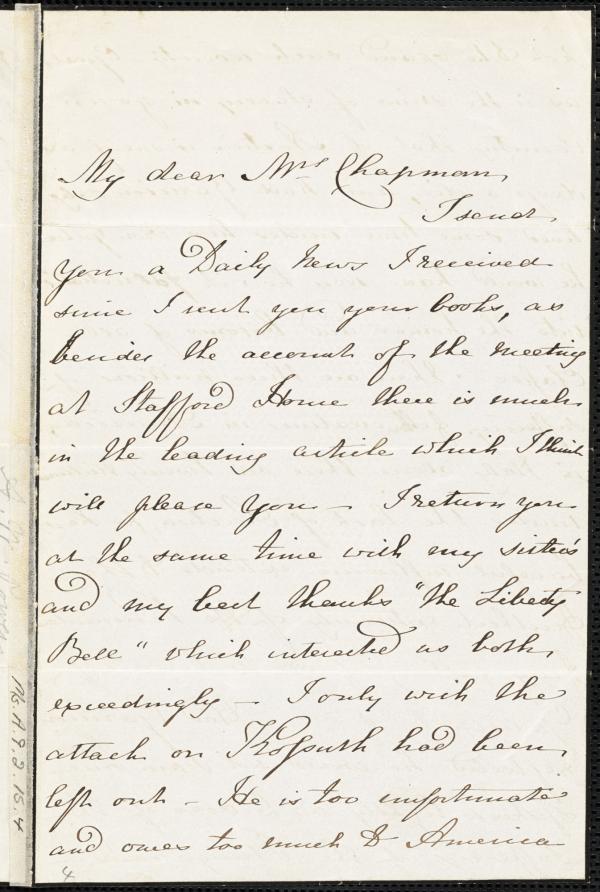 My dear Mrs Chapman,
I send
you a Daily News I received
since I sent you your books, as
besides the account of the meeting
at Stafford House there is much
in the leading article which I think
will please you – I return you
at the same time with my sister's
and my best thanks "the Liberty
Bell" which interested us both
exceedingly – I only wish the
attack on Kossuth had been
left out – He is too unfortunate
and owes too much to America
4
Ms A.9.2.15.4